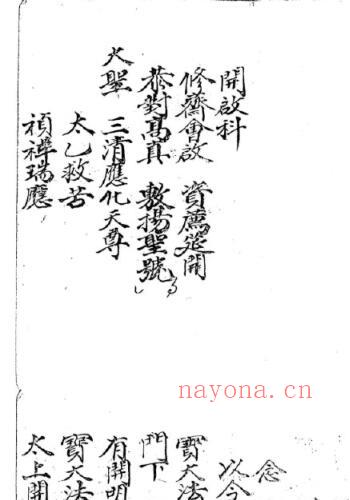 開啟科
修齋會啟 資薦筵開
恭對高真 敷揚聖號
大聖 三清應化天尊
太乙救苦
禎祥瑞應
念
以今
寶大法
門下
有開明
寶大法
太上開
nayona.cn